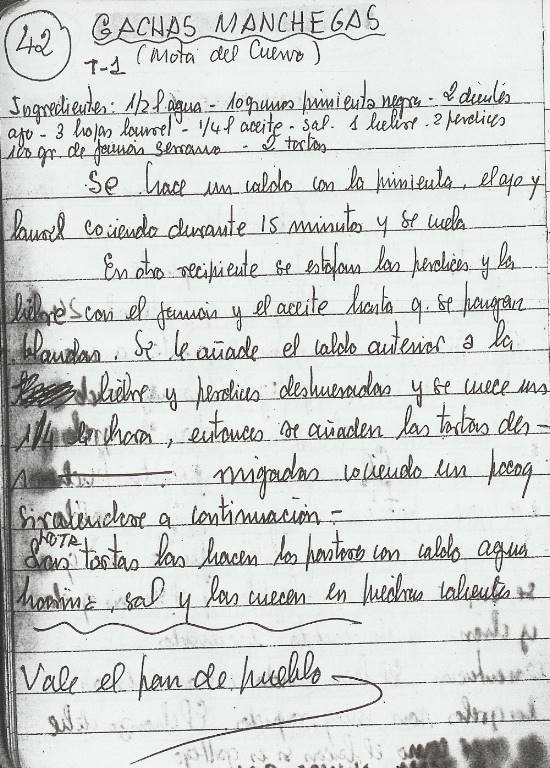 42
GACHAS MANCHEGAS
T-1 (Mota del Cuervo)
Ingredientes: 1/2 l agua - 10 granos pimienta negra - 2 dientes
ajo - 3 hojas laurel - 1/4 l aceite - sal. 1 liebre. 2 perdices
100 gr. de jamón serrano - 2 tortas
Se hace un caldo con la pimienta, el ajo y
laurel cociendo durante 15 minutos y se cuela
En otro recipiente se estofan las perdices y la
liebre con el jamón y el aceite hasta q. se pongan
blandas. Se le añade el caldo anterior a la
liebre y perdices deshuesadas y se cuece una
1/4 de hora, entonces se añaden las tortas des-
migadas cociendo un poco q
sirviendose a continuación -
NOTA
Las tortas las hacen los pastores con caldo agua
harina, sal y las cuecen en piedras calientes
Vale el pan de pueblo